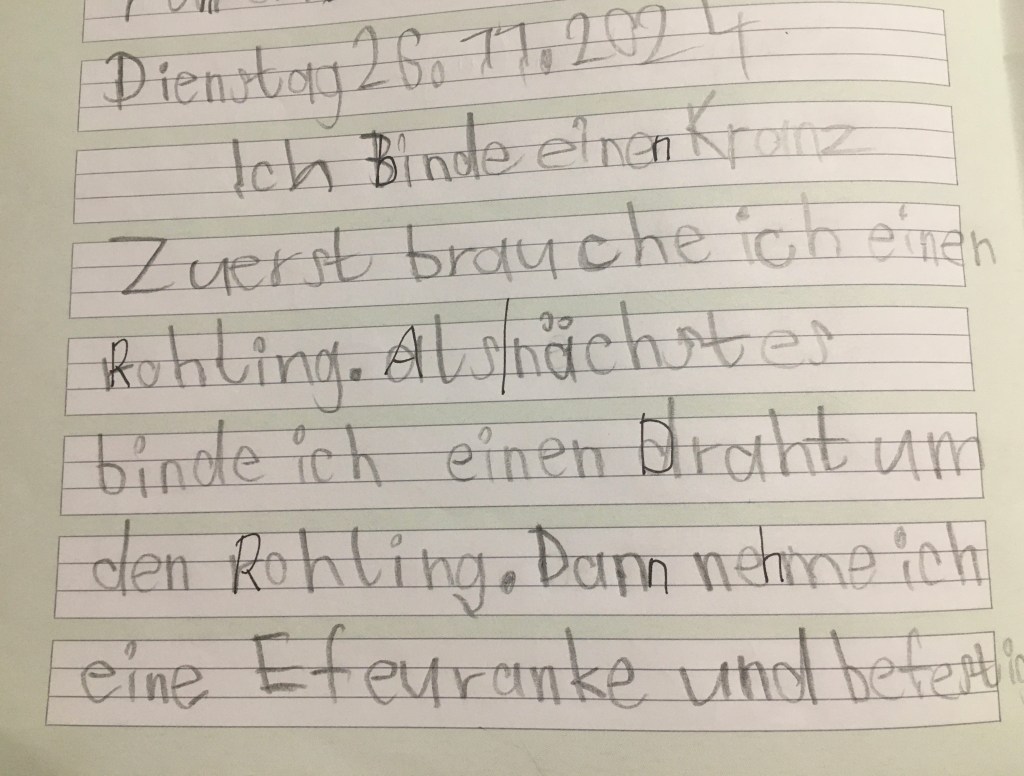 Dienstag 26.11.2024
Ich Binde einen Kranz
Zuerst brauche ich einen
Rohling. Als/nächstes
binde ich einen Draht um
den Rohling. Dann nehme ich
eine Efeuranke und befestig